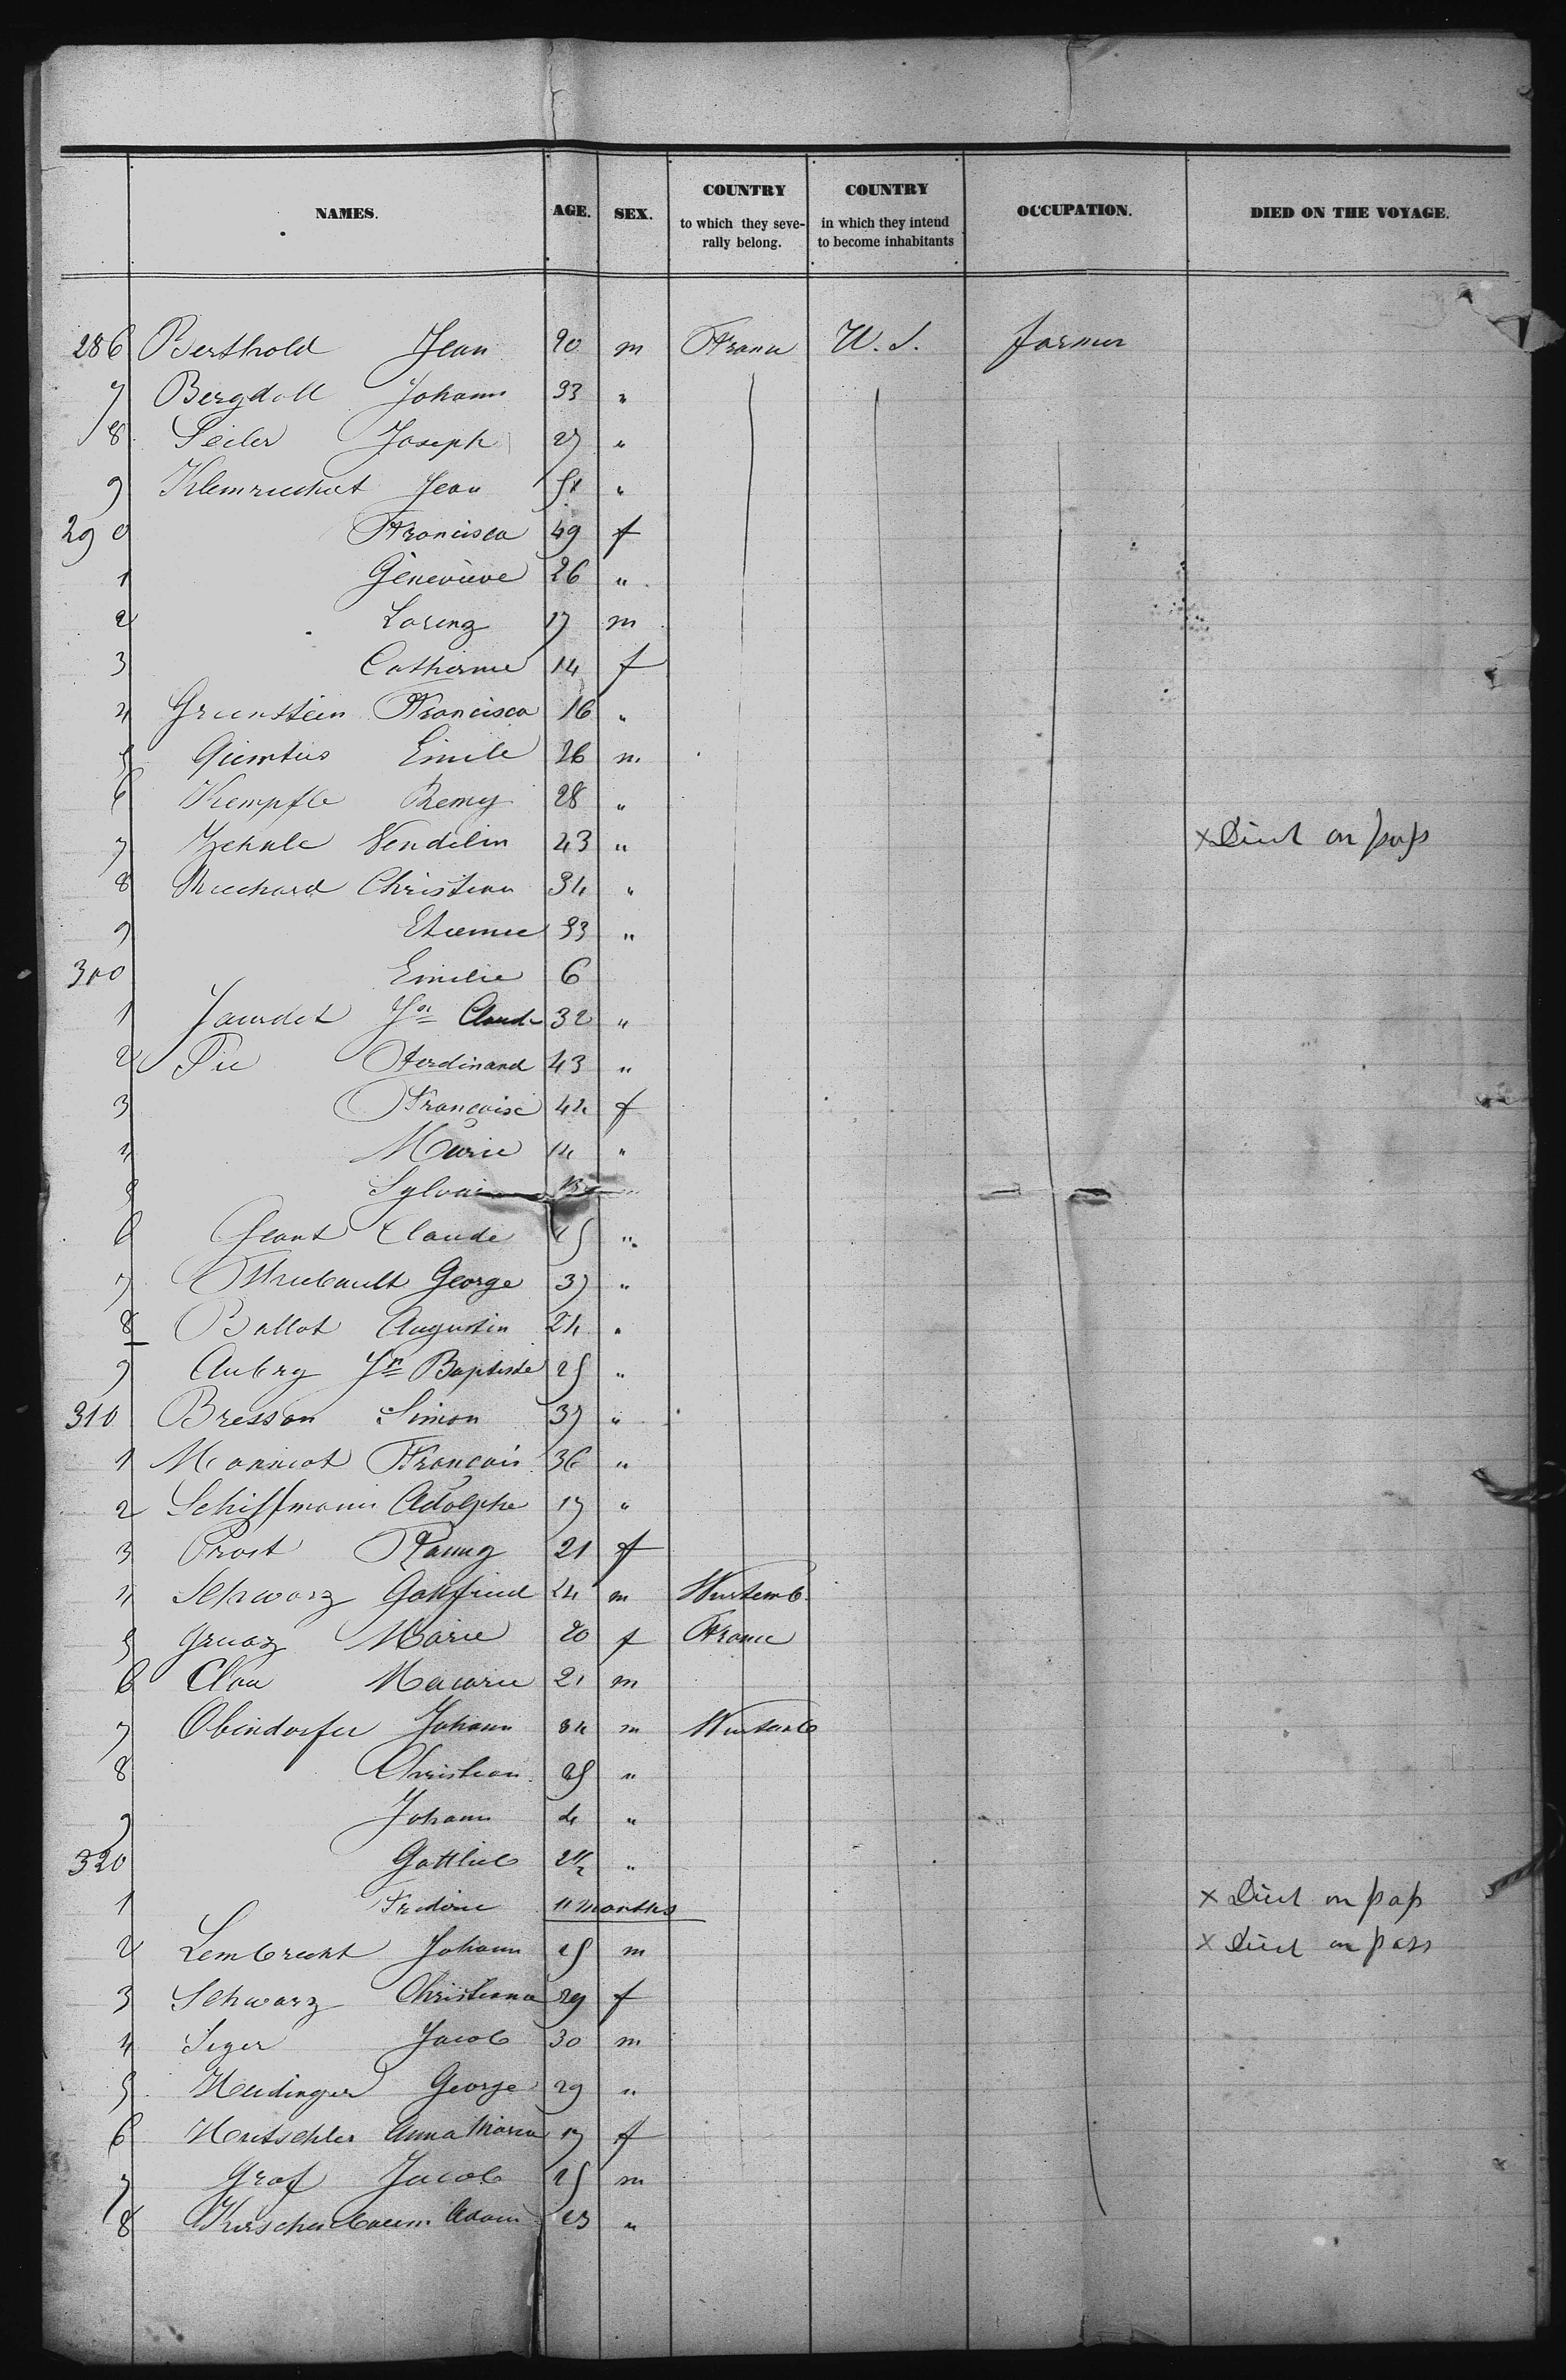 NAMES. AGE. SEX. COUNTRY to which they seve-rally belong. COUNTRY in which they intend to become inhabitants OCCUPATION. DIED ON THE VOYAGE.
286 Berthold Jean 20 m France U.S. farmer
7 Bergdoll Johann 33 "
8 Seiler Joseph 27 "
9 Jean "
290 Francisca 49 f
1 Géneviève 26 "
2 Lorenz 17 m
3 Catherine 14 f
4 Grunstein Francisca 16 "
5 Emile 26 m
6 Kempfle Remy 28 "
7 Zehnle Vendelin 43 " x Died on pass
8 Ruechard Christian 34 "
9 Etienne 33 "
300 Emilie 6
1 Jourdet Jn Claude 32 "
2 Pie Ferdinand 43 "
3 Françoise 42 f
4 Marie 14 "
5 Sylvain
6 Claude "
7 Thiebault George 37 "
8 Ballot Augustin 24 "
9 Aubry Jn Baptiste 25 "
310 Bresson Simon 37 "
1 Monniot François 36 "
2 Schiffmann Adolphe 17 "
3 Prost Fanny 21 f
4 Schwarz Gottfried 24 m Wurtemb.
5 Gruaz Marie 20 f France
6 Macarie 21 m
7 Obendorfer Johann 34 m Wurtemb
8 Christian 25 "
9 Johann 4 "
320 Gottlieb 2 1/2 "
1 11 months x Died on pass
2 Lembrecht Johann 25 m x Died on pass
3 Schwarz Christiana 29 f
4 Seger Jacob 30 m
5 Heidinger George 29 "
6 Hentschler Anna Maria 17 f
7 Graf Jacob 25 m
8 Kirschenbaum Adam 23 "